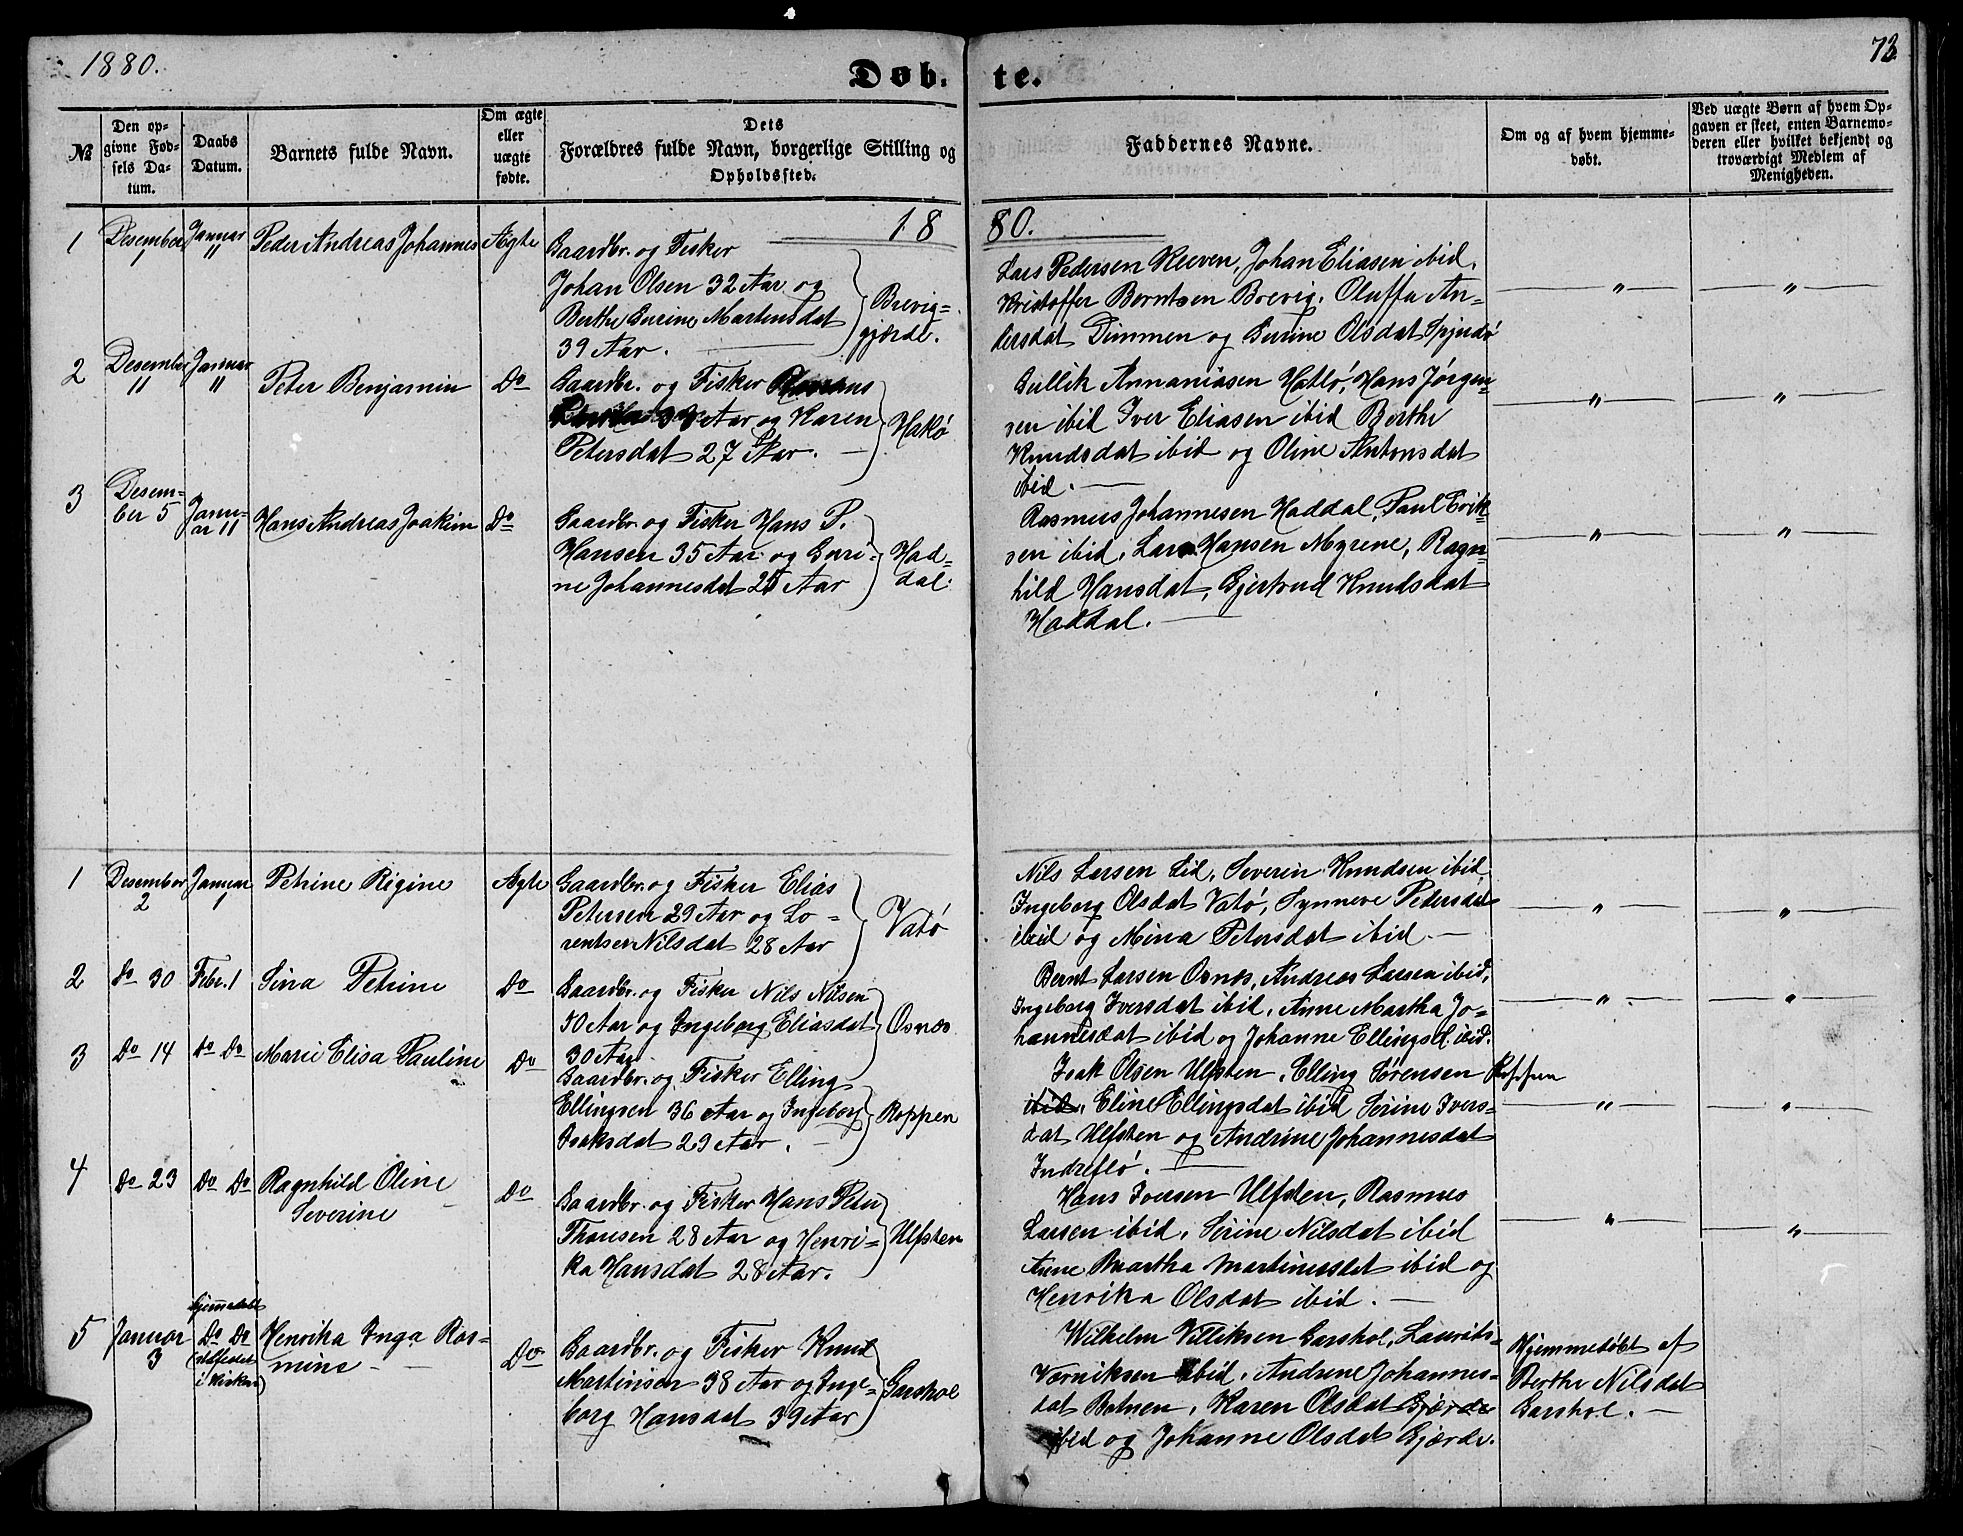 1880.
Døb.
te.
73
№
Den op-
givne Fød-
sels Da-
tum.
Daabs
Datum.
Barnets fulde Navn.
Om ægte
eller
uægte
fødte.
Dets
Forældres fulde Navn, borgerlige Stilling og
Opholdssted.
Faddernes Navne.
Om og af hvem hjemme-
døbt.
Ved uægte Børn af hvem Op-
gaven er skeet, enten Barnemo-
deren eller hvilket bekjendt og
troværdigt Medlem af
Menigheden.
18
80.
1
Desember
1
Januar
11
Peder Andreas Johannes
Ægte
Gaardbr. og Fisker
Johan Olsen 32 Aar og
Berthe Gurine Martensdat
39 Aar.
Brevig-
gjærde.
Lars Pedersen Kleven, Johan Eliasen ibid,
Kristoffer Berntsen Brevig, Oluffa An-
dersdat Dimmen og Gurine Olsdat
2
Desember
11
Januar
11
Peter Benjamin
Do
Gaardbr. og Fisker
33 Aar og Karen
Petersdat 27 Aar.
Hatlø
Gullik Annaniasen Hatlø, Hans Jørgen-
sen ibid Iver Eliasen ibid Berthe
Knudsdat ibid og Oline Antonsdat
ibid.
3
Desem-
ber 5
Janu-
ar 11
Hans Andreas Joakim
Do
Gaardbr. og Fisker Hans P.
Hansen 35 Aar og Guri-
ne Johannesdat 25 Aar
Had-
dal.
Rasmus Johannesen Haddal, Paul Erik-
sen ibid, Lars Hansen Myrene, Ragn-
hild Hansdat, Gjertrud Knudsdat
Haddal.
1
Desember
2
Januar
1
Petrine Rigine
Ægte
Gaardbr. og Fisker Elias
Petersen 29 Aar og Lo-
rentse Nilsdat 28 Aar
Vatø
Nils Larsen Lid, Severin Knudsen ibid,
Ingeborg Olsdat Vatø, Synneve Pedersdat
ibid og Mina Petersdat ibid.
2
Do 30
Febr. 1
Sina Petrine
Do
Gaardbr. og Fisker Nils Nilsen
50 Aar og Ingeborg Eliasdat
30 Aar.
Osnæs
Bernt Larsen Osnæs, Andreas Larsen ibid,
Ingeborg Iversdat ibid, Anne Martha Jo-
hannesdat ibid og Johanne Ellingsd. ibid.
3
Do 14
Do Do
Marie Elisa Pauline
Do
Gaardbr. og Fisker Elling
Ellingsen 36 Aar og Ingeborg
Isaksdat 29 Aar.
Roppen
Isak Olsen Ulfsten, Elling Sørensen Roppen
ibid, Eline Ellingsdat ibid Serine Ivers-
dat Ulfsten og Andrine Johannesdat
Indreflø.
4
Do 23
Do Do
Ragnhild Oline
Severine
Do
Gaardbr. og Fisker Hans Peter
Thoresen 28 Aar og Henri-
ka Hansdat 28 Aar.
Ulfsten
Hans Iversen Ulfsten, Rasmus
Larsen ibid, Serine Nilsdat ibid
Anne Martha Martinusdat ibid og
Henrika Olsdat ibid.
5
Januar
3
hjemmedøbt
Do Do
stadfestet
i Kirken
Henrika Inga Ras-
mine
Do
Gaardbr. og Fisker Knud
Martinsen 38 Aar og Inge-
borg Hansdat 39 Aar
Garshol
Wilhelm Villiksen Garshol, Laurits
Værniksen ibid, Andrine Johannes-
dat Botnen, Karen Olsdat Gjærde
ibid og Johanne Olsdat Gjærde.
Hjemmedøbt af
Berthe Nilsdat
Garshol.